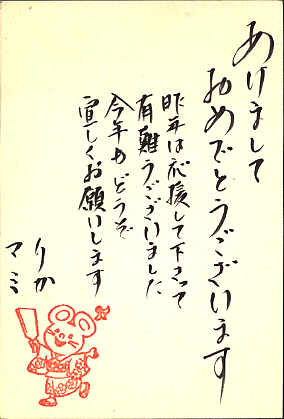 あけまして
おめでとうございます
昨年は応援して下さって
有難うございました
今年もどうぞ
宜しくお願いします
りか
マミ